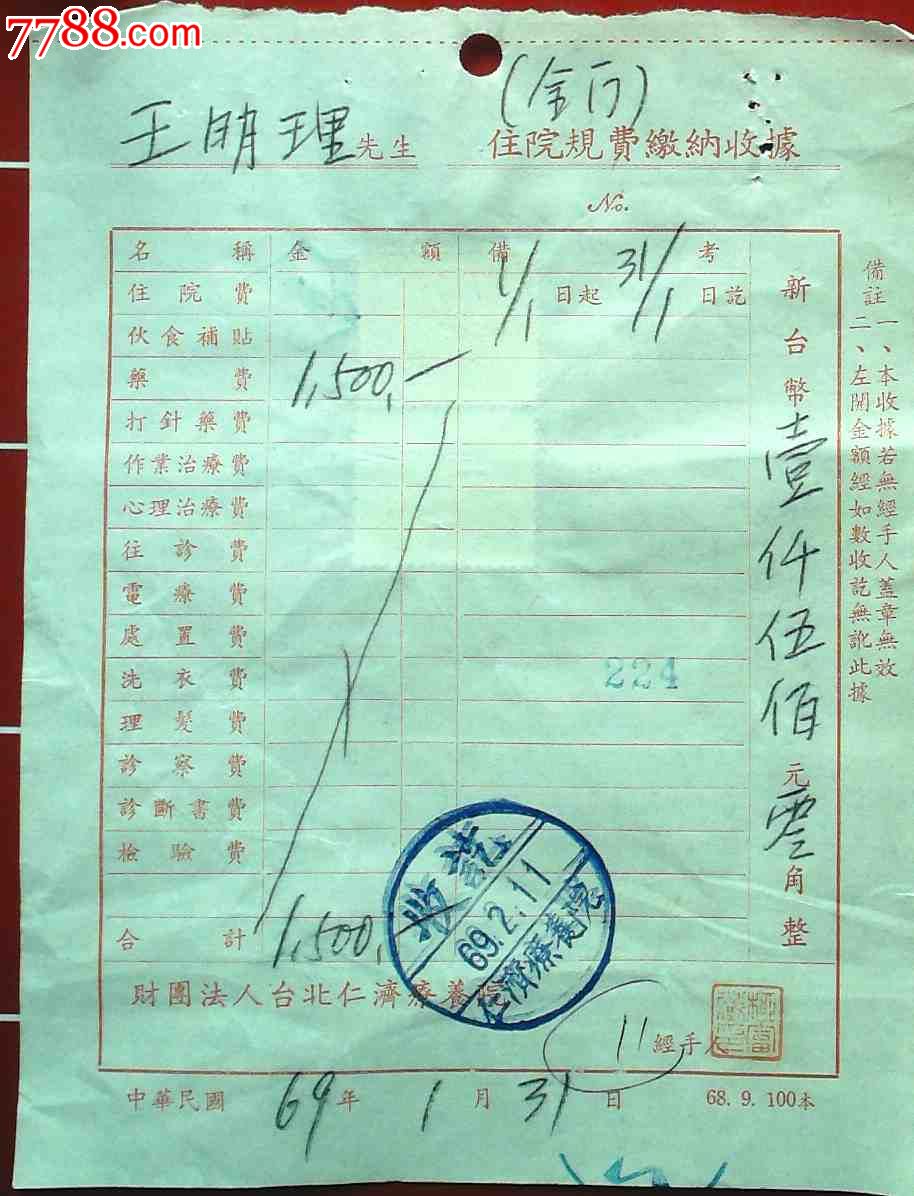 7788.com
(全円)
王明理先生
住院規費繳納收據
No.
名稱 金額 備考
住院費 1/1日起 31/1日訖
伙食補貼
藥費 1,500,—
打針藥費
作業治療費
心理治療費
往診費
電療費
處置費
洗衣費 224
理髮費
診察費
診斷書費
檢驗費
合計 1,500,—
新台幣壹仟伍佰元零角整
備註
一、本收據若無經手人蓋章無效
二、左開金額經如數收訖無訛此據
收訖
69.2.11
仁濟療養院
財團法人台北仁濟療養院
11 經手人
中華民國69年1月31日
68. 9. 100本